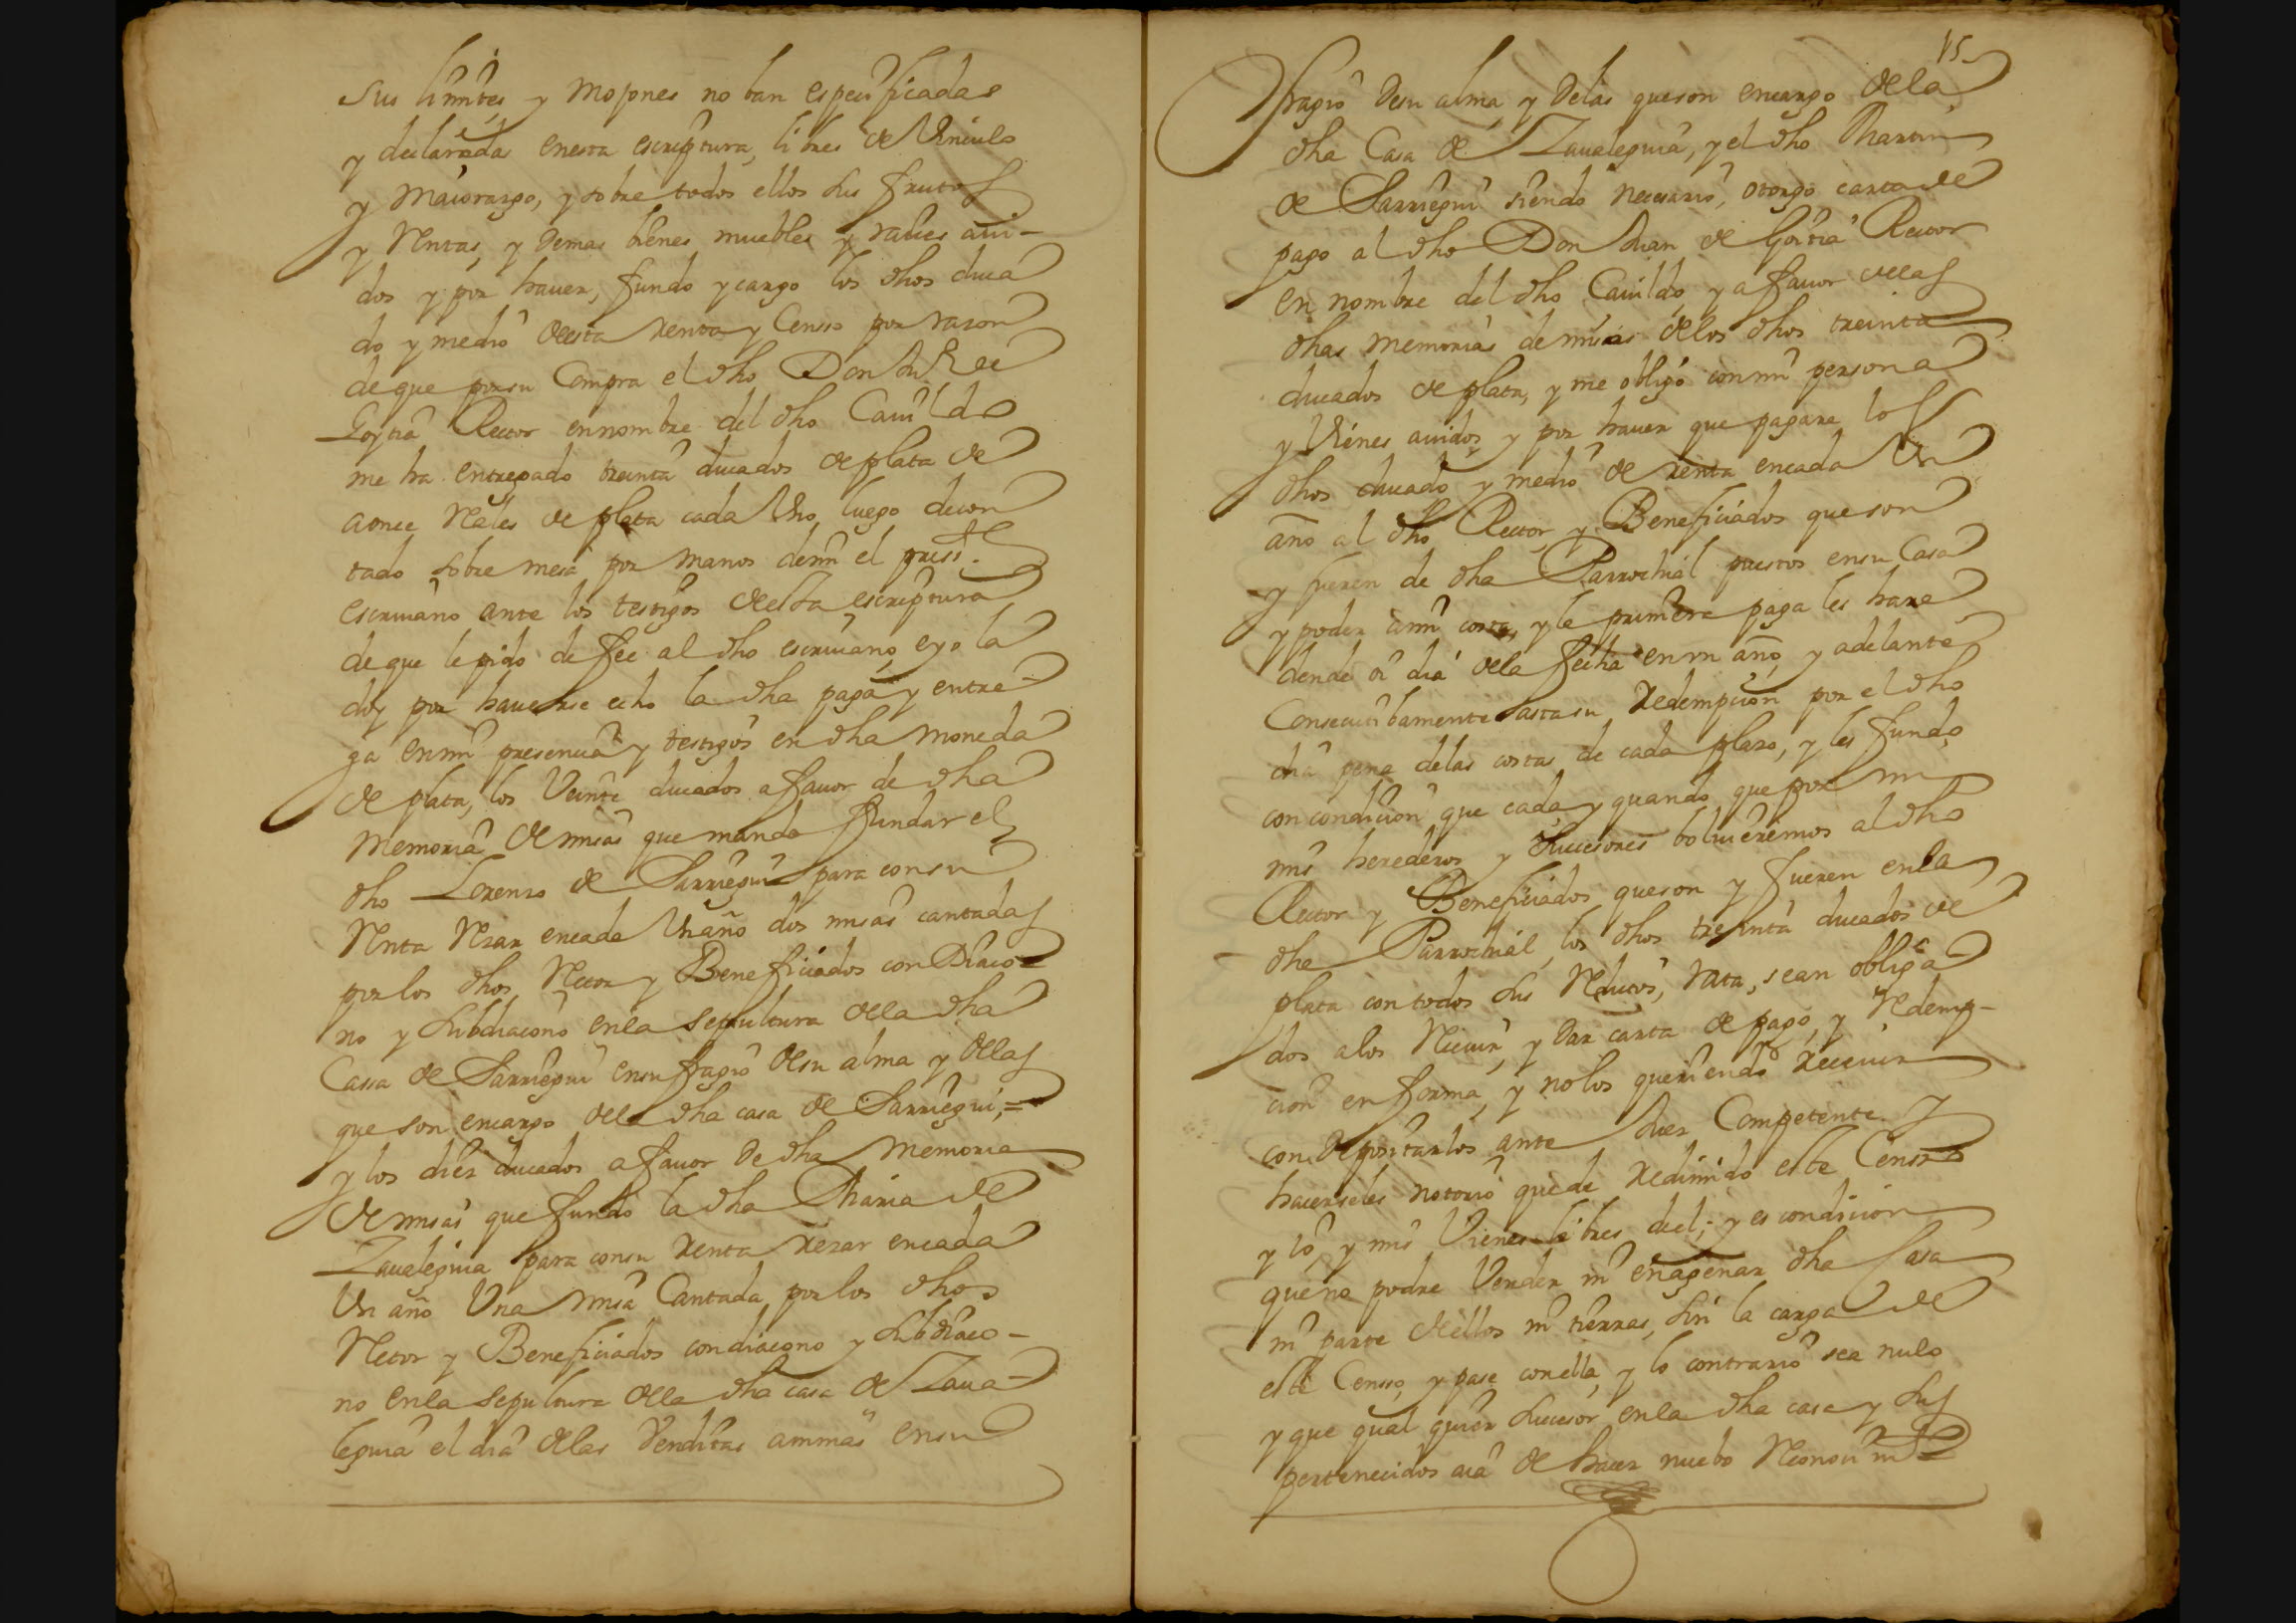 sus limites y mojones no ban espeçificadas
y declaradas enesta escriptura, libres de Vinculo
y maiorazgo, y sobre todos ellos sus frutos
y Rentas, y demas bienes muebles y raices aui-
dos y por hauer, fundo y cargo los dhos duca
do y medio de esta renta y Censso por raçon
de que por su Compra el dho Don Ju° de
Goytia Rector en nombre del dho Cauildo
me ha entregado treinta ducados de plata de
a once Reales de plata cada Vno luego de con
tado sobre mesa por manos de mi el press.te
escriuano ante los testigos de esta escriptura
de que le pido de fee al dho escriuano, e yo la
doy por hauerse echo la dha paga y entre-
ga en mi presencia y testigos en dha moneda
de plata, los Veinte ducados a fauor de dha
memoria de misas que manda fundar el
dho Lorenzo de Sarriegui para con su
Renta Rezar en cada Vn año dos misas cantadas
por los dhos Retor y Beneficiados con Diaco-
no y subdiacono en la sepultura de la dha
Cassa de Sarriegui en sufragio de su alma y de las
que son en cargo de la dha casa de Sarriegui, =
y los diez ducados a fauor de dha memoria
de misas que fundo la dha Maria de
Zaualeguia para con su renta rezar en cada
Vn año Vna misa Cantada por los dhos
Retor y Beneficiados con diacono y subdiaco-
no en la sepultura de la dha casa de Zaua-
leguia el dia de las Venditas animas en su
15
fragio de su alma, y de las que son en cargo de la
dha Casa de Zaualeguia, y el dho Martin
de Sarriegui siendo necesario, otorgo carta de
pago al dho Don Juan de Goitia Rector
en nombre del dho Cauildo, y a fauor de las
dhas memorias de misas de los dhos treinta
ducados de plata, y me obligo con mi persona
y Vienes auidos y por hauer que pagare los
dhos ducado y medio de renta en cada Vn
año al dho Rector, y Beneficiados que son
y fueren de dha Parrochial puestos en su Casa
y poder a mi costa, y la primera paga les hare
dende oi dia de la fecha en vn año, y adelante
Consecutibamente asta su redempçion por el dho
dia pena de las costas de cada plazo, y les fundo
con condicion que cada y quando que por mi
mis herederos y subcesores bolbieremos al dho
Rector y Beneficiados que son y fueren en la
dha Parrochial, los dhos treinta ducados de
plata con todos sus Reditos, rata, sean obliga
dos a los Reciuir, y dar carta de pago, y Redemp-
cion en forma, y no los queriendo receuir
con depositarlos ante Juez Competente y
hacerseles notorio quede redimido este Censso
y io, y mis Vienes libres del; y es condicion
que no podre Vender ni enagenar dha Casa
ni parte de ellos ni tierras, sin la carga de
este Censso, y pase con ella, y lo contrario sea nulo
y que qual quier sucesor en la dha casa y sus
pertenecidos aia de hacer nuebo Reconoci m.to